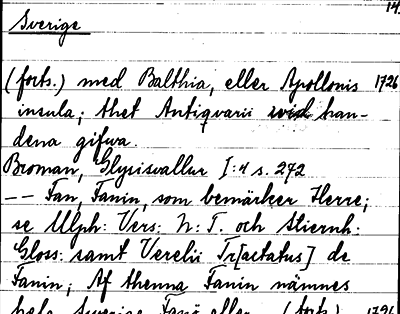 14.
Sverige
(forts.) med Balthia, eller Apollonis 1726
insula; thet Antiqvarii wid han-
dena gifwa.
Broman, Glysisvallur I:4 s. 272
-- Fan, Fanin, som bemärker Herre;
se Ulph: Vers: N: T. och Stiernh:
Gloss: samt Verelii Tr[actatus] de
Fanin; Af thenna Fanin nämnes
hela Sverige Fanö eller (forts.) 1726